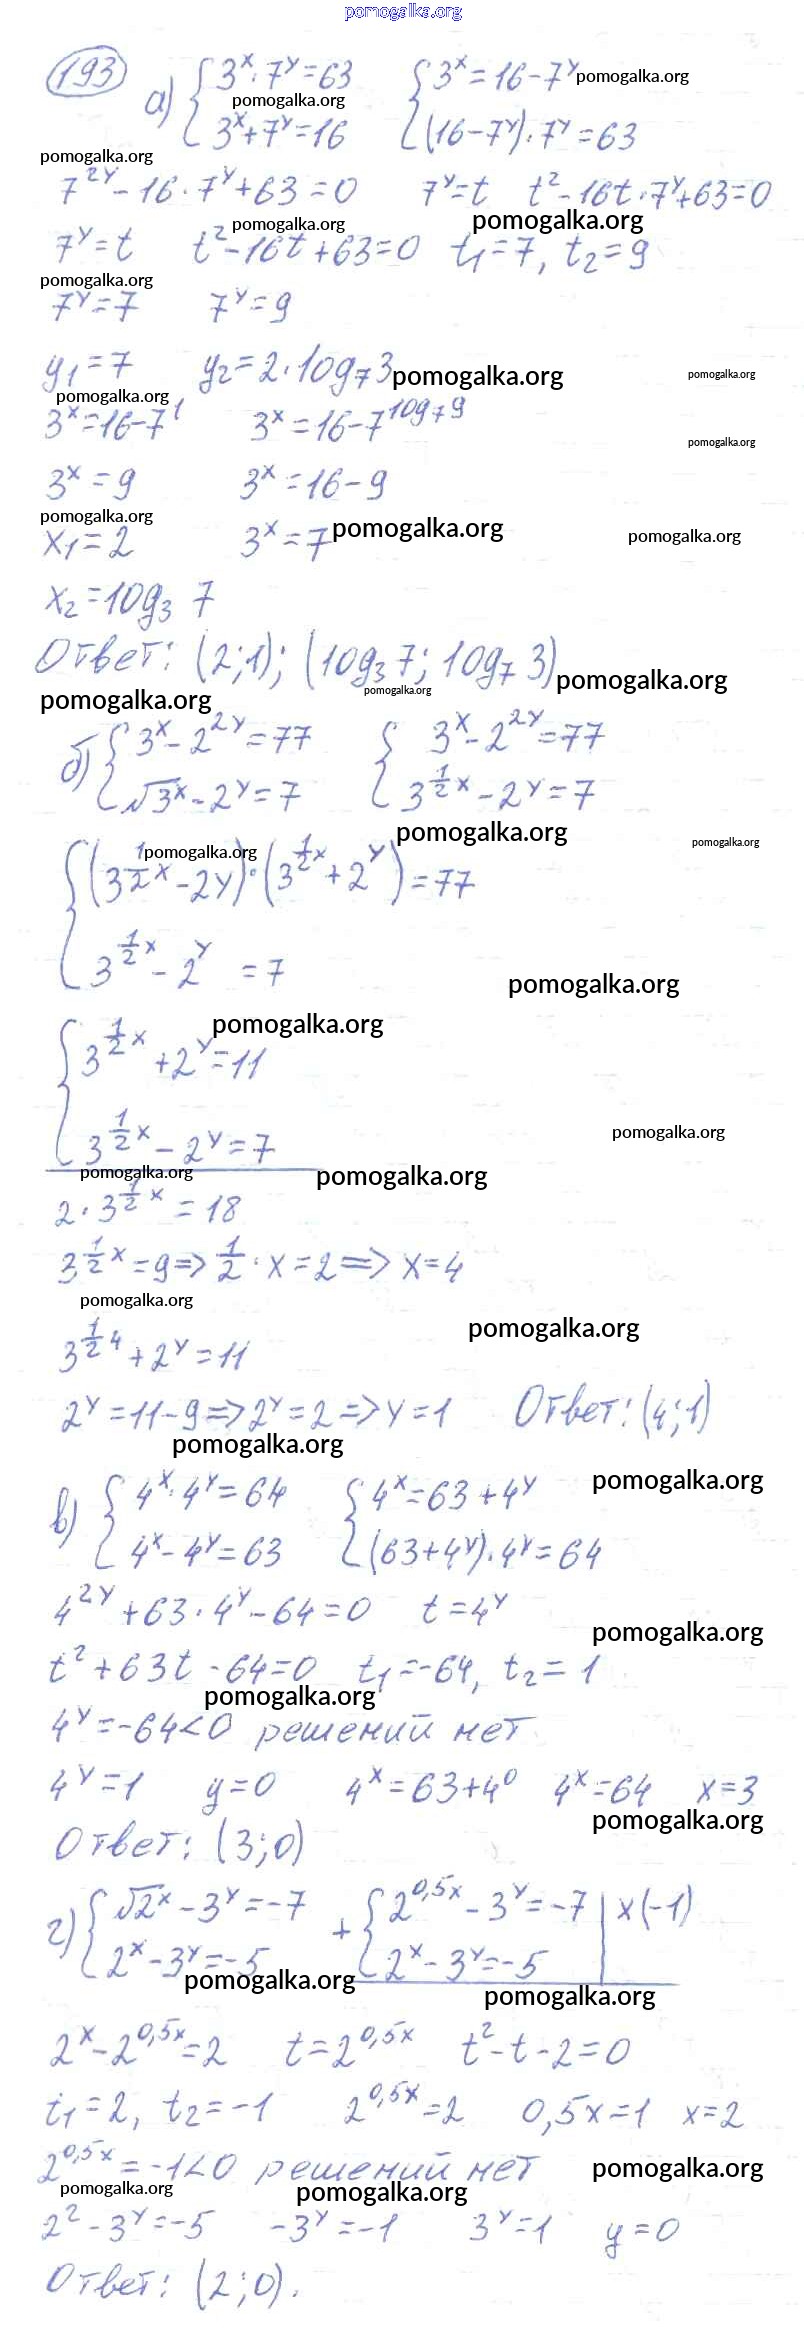 pomogalka.org
193
а) { 3^x · 7^y = 63    { 3^x = 16 - 7^y pomogalka.org
pomogalka.org
3^x + 7^y = 16    (16 - 7^y) · 7^y = 63
pomogalka.org
7^2y - 16 · 7^y + 63 = 0    7^y = t    t^2 - 16t · 7^y + 63 = 0
pomogalka.org pomogalka.org
7^y = t    t^2 - 16t + 63 = 0    t1 = 7, t2 = 9
pomogalka.org
7^y = 7    7^y = 9
y1 = 7    y2 = 2 · log7 3 pomogalka.org pomogalka.org
pomogalka.org
3^x = 16 - 7^1    3^x = 16 - 7^log7 9
pomogalka.org
3^x = 9    3^x = 16 - 9
pomogalka.org
x1 = 2    3^x = 7 pomogalka.org pomogalka.org
x2 = log3 7
Ответ: (2; 1); (log3 7; log7 3) pomogalka.org
pomogalka.org pomogalka.org
б) { 3^x - 2^2y = 77    { 3^x - 2^2y = 77
√3^x - 2^y = 7    3^1/2x - 2^y = 7
pomogalka.org pomogalka.org
pomogalka.org
{ (3^1/2x - 2y) · (3^1/2x + 2^y) = 77
3^1/2x - 2^y = 7
pomogalka.org
pomogalka.org
{ 3^1/2x + 2^y = 11
3^1/2x - 2^y = 7 pomogalka.org
pomogalka.org pomogalka.org
2 · 3^1/2x = 18
3^1/2x = 9 => 1/2 · x = 2 => x = 4
pomogalka.org
pomogalka.org
3^1/2 4 + 2^y = 11
2^y = 11 - 9 => 2^y = 2 => y = 1    Ответ: (4; 1)
pomogalka.org
pomogalka.org
в) { 4^x · 4^y = 64    { 4^x = 63 + 4^y
4^x - 4^y = 63    (63 + 4^y) · 4^y = 64
4^2y + 63 · 4^y - 64 = 0    t = 4^y
pomogalka.org
t^2 + 63t - 64 = 0    t1 = -64, t2 = 1
pomogalka.org
4^y = -64 < 0 решений нет
4^y = 1    y = 0    4^x = 63 + 4^0    4^x = 64    x = 3
pomogalka.org
Ответ: (3; 0)
г) { √2^x - 3^y = -7    + { 2^0,5x - 3^y = -7 | x (-1)
2^x - 3^y = -5    2^x - 3^y = -5
pomogalka.org pomogalka.org
2^x - 2^0,5x = 2    t = 2^0,5x    t^2 - t - 2 = 0
t1 = 2, t2 = -1    2^0,5x = 2    0,5x = 1    x = 2
2^0,5x = -1 < 0 решений нет pomogalka.org
pomogalka.org pomogalka.org
2^2 - 3^y = -5    -3^y = -1    3^y = 1    y = 0
Ответ: (2; 0).